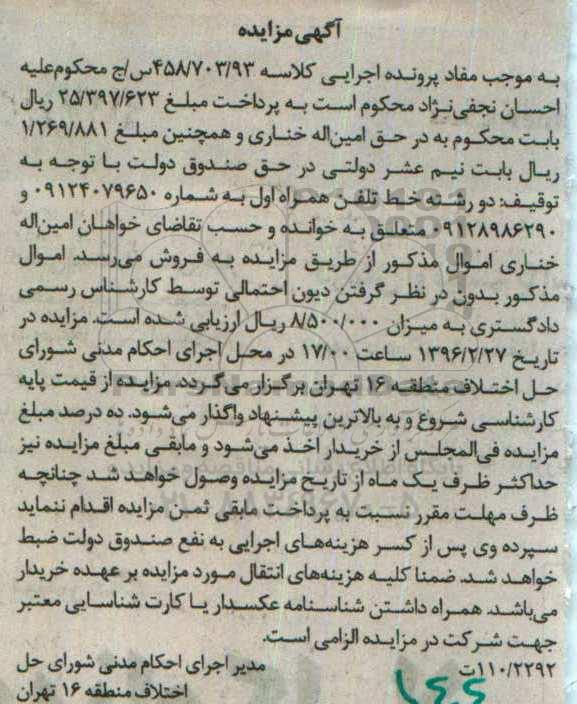 آگهی مزایده
به موجب مفاد پرونده اجرایی کلاسه ۴۵۸/۷۰۳/۹۳س/ج محکوم‌علیه
احسان نجفی‌نژاد محکوم است به پرداخت مبلغ ۲۵/۳۹۷/۶۲۳ ریال
بابت محکوم به در حق امین‌اله خناری و همچنین مبلغ ۱/۲۶۹/۸۸۱
ریال بابت نیم عشر دولتی در حق صندوق دولت با توجه به
توقیف: دو رشته خط تلفن همراه اول به شماره ۰۹۱۲۴۰۷۹۶۵۰ و
۰۹۱۲۸۹۸۶۲۹۰ متعلق به خوانده و حسب تقاضای خواهان امین‌اله
خناری اموال مذکور از طریق مزایده به فروش می‌رسد. اموال
مذکور بدون در نظر گرفتن دیون احتمالی توسط کارشناس رسمی
دادگستری به میزان ۸/۵۰۰/۰۰۰ ریال ارزیابی شده است. مزایده در
تاریخ ۱۳۹۶/۲/۲۷ ساعت ۱۷/۰۰ در محل اجرای احکام مدنی شورای
حل اختلاف منطقه ۱۶ تهران برگزار می‌گردد. مزایده از قیمت پایه
کارشناسی شروع و به بالاترین پیشنهاد واگذار می‌شود. ده درصد مبلغ
مزایده فی‌المجلس از خریدار اخذ می‌شود و مابقی مبلغ مزایده نیز
حداکثر ظرف یک ماه از تاریخ مزایده وصول خواهد شد چنانچه
ظرف مهلت مقرر نسبت به پرداخت مابقی ثمن مزایده اقدام ننماید
سپرده وی پس از کسر هزینه‌های اجرایی به نفع صندوق دولت ضبط
خواهد شد. ضمنا کلیه هزینه‌های انتقال مورد مزایده بر عهده خریدار
می‌باشد. همراه داشتن شناسنامه عکسدار یا کارت شناسایی معتبر
جهت شرکت در مزایده الزامی است.
۱۱۰/۲۲۹۲ت
مدیر اجرای احکام مدنی شورای حل
اختلاف منطقه ۱۶ تهران